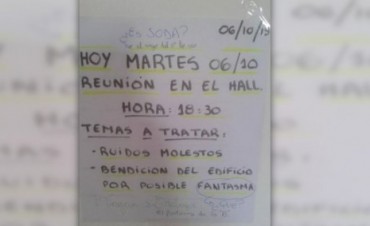 ¿es SODA?
06/10/15
HOY MARTES 06/10
REUNIÓN EN EL HALL.
HORA: 18:30
TEMAS A TRATAR:
- RUIDOS MOLESTOS
- BENDICION DEL EDIFICIO
POR POSIBLE FANTASMA